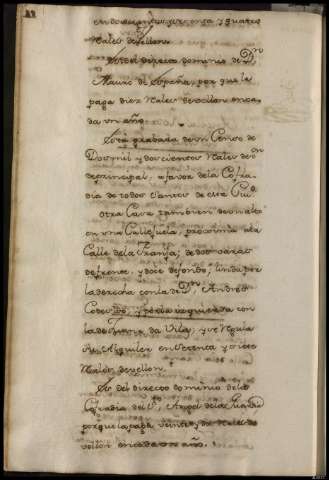 en doscientos setenta y quatro
Reales de vellon.
Es del directo dominio de Dn.
Mauro de España, por que le
paga diez Reales de vellon en ca
da un año.
Está grabada de un Censo de
Dos mil y doscientos Reales de von.
de principal, a favor de la Cofra
dia de todos Santos de esta Ciud.
Otra Casa tambien de un alto
en una Callejuela, proxima a la
Calle de la Franja; de dos varas
de frente, y doce de fondo; linda por
la derecha con la de Dn. Andres
y por la izquierda con
la de da Vila; y se Regula
su Alquiler en Setenta y
Reales de vellon.
Es del directo dominio de la
Cofradia del Sto. Angel de la Guarda
porque la paga veinte y dos Reales de
vellon en cada un año.